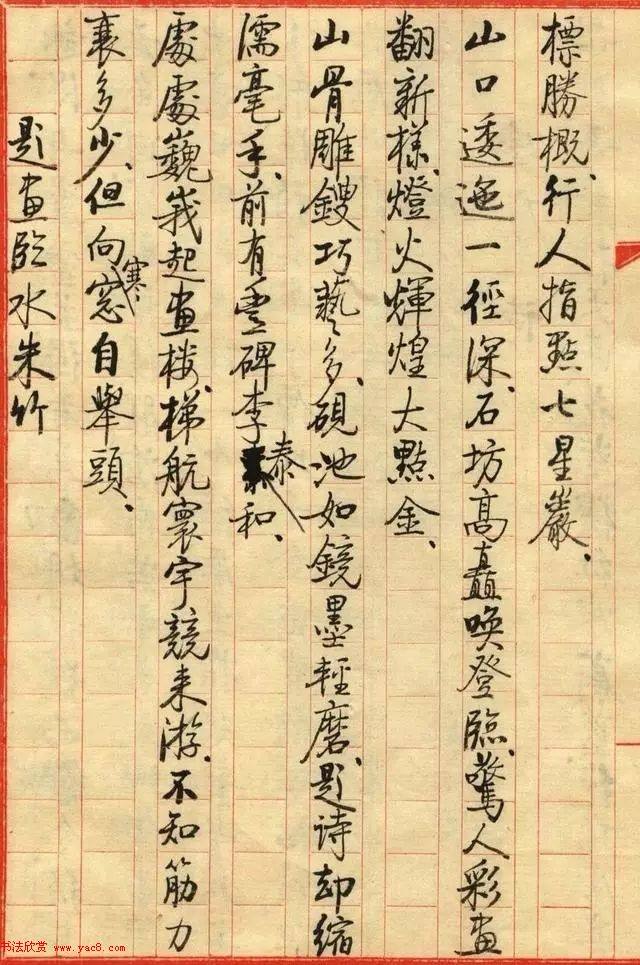 標勝概、行人指點七星巖、
山口逶迤一徑深、石坊高矗喚登臨、驚人彩畫
翻新樣、燈火輝煌大點金、
山骨雕鎪巧藝多、硯池如鏡墨輕磨、題诗却缩
濡毫手、前有豐碑李泰和、
處處巍峩起画楼、梯航寰宇競来游、不知筋力
衰多少、但向寒窓自舉頭、
題画临水朱竹
书法欣赏 www.yac8.com